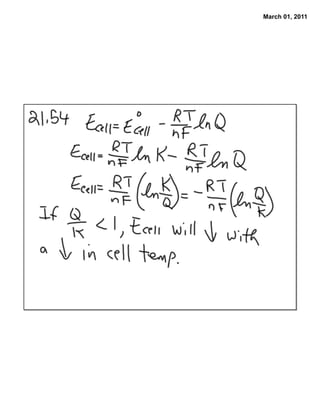 March 01, 2011
21.54 Ecell = E°cell - RT/nF ln Q
Ecell = RT/nF ln K - RT/nF ln Q
Ecell = RT/nF (ln K/Q) = - RT/nF (ln Q/K)
If Q/K < 1, Ecell will ↓ with
a ↓ in cell temp.